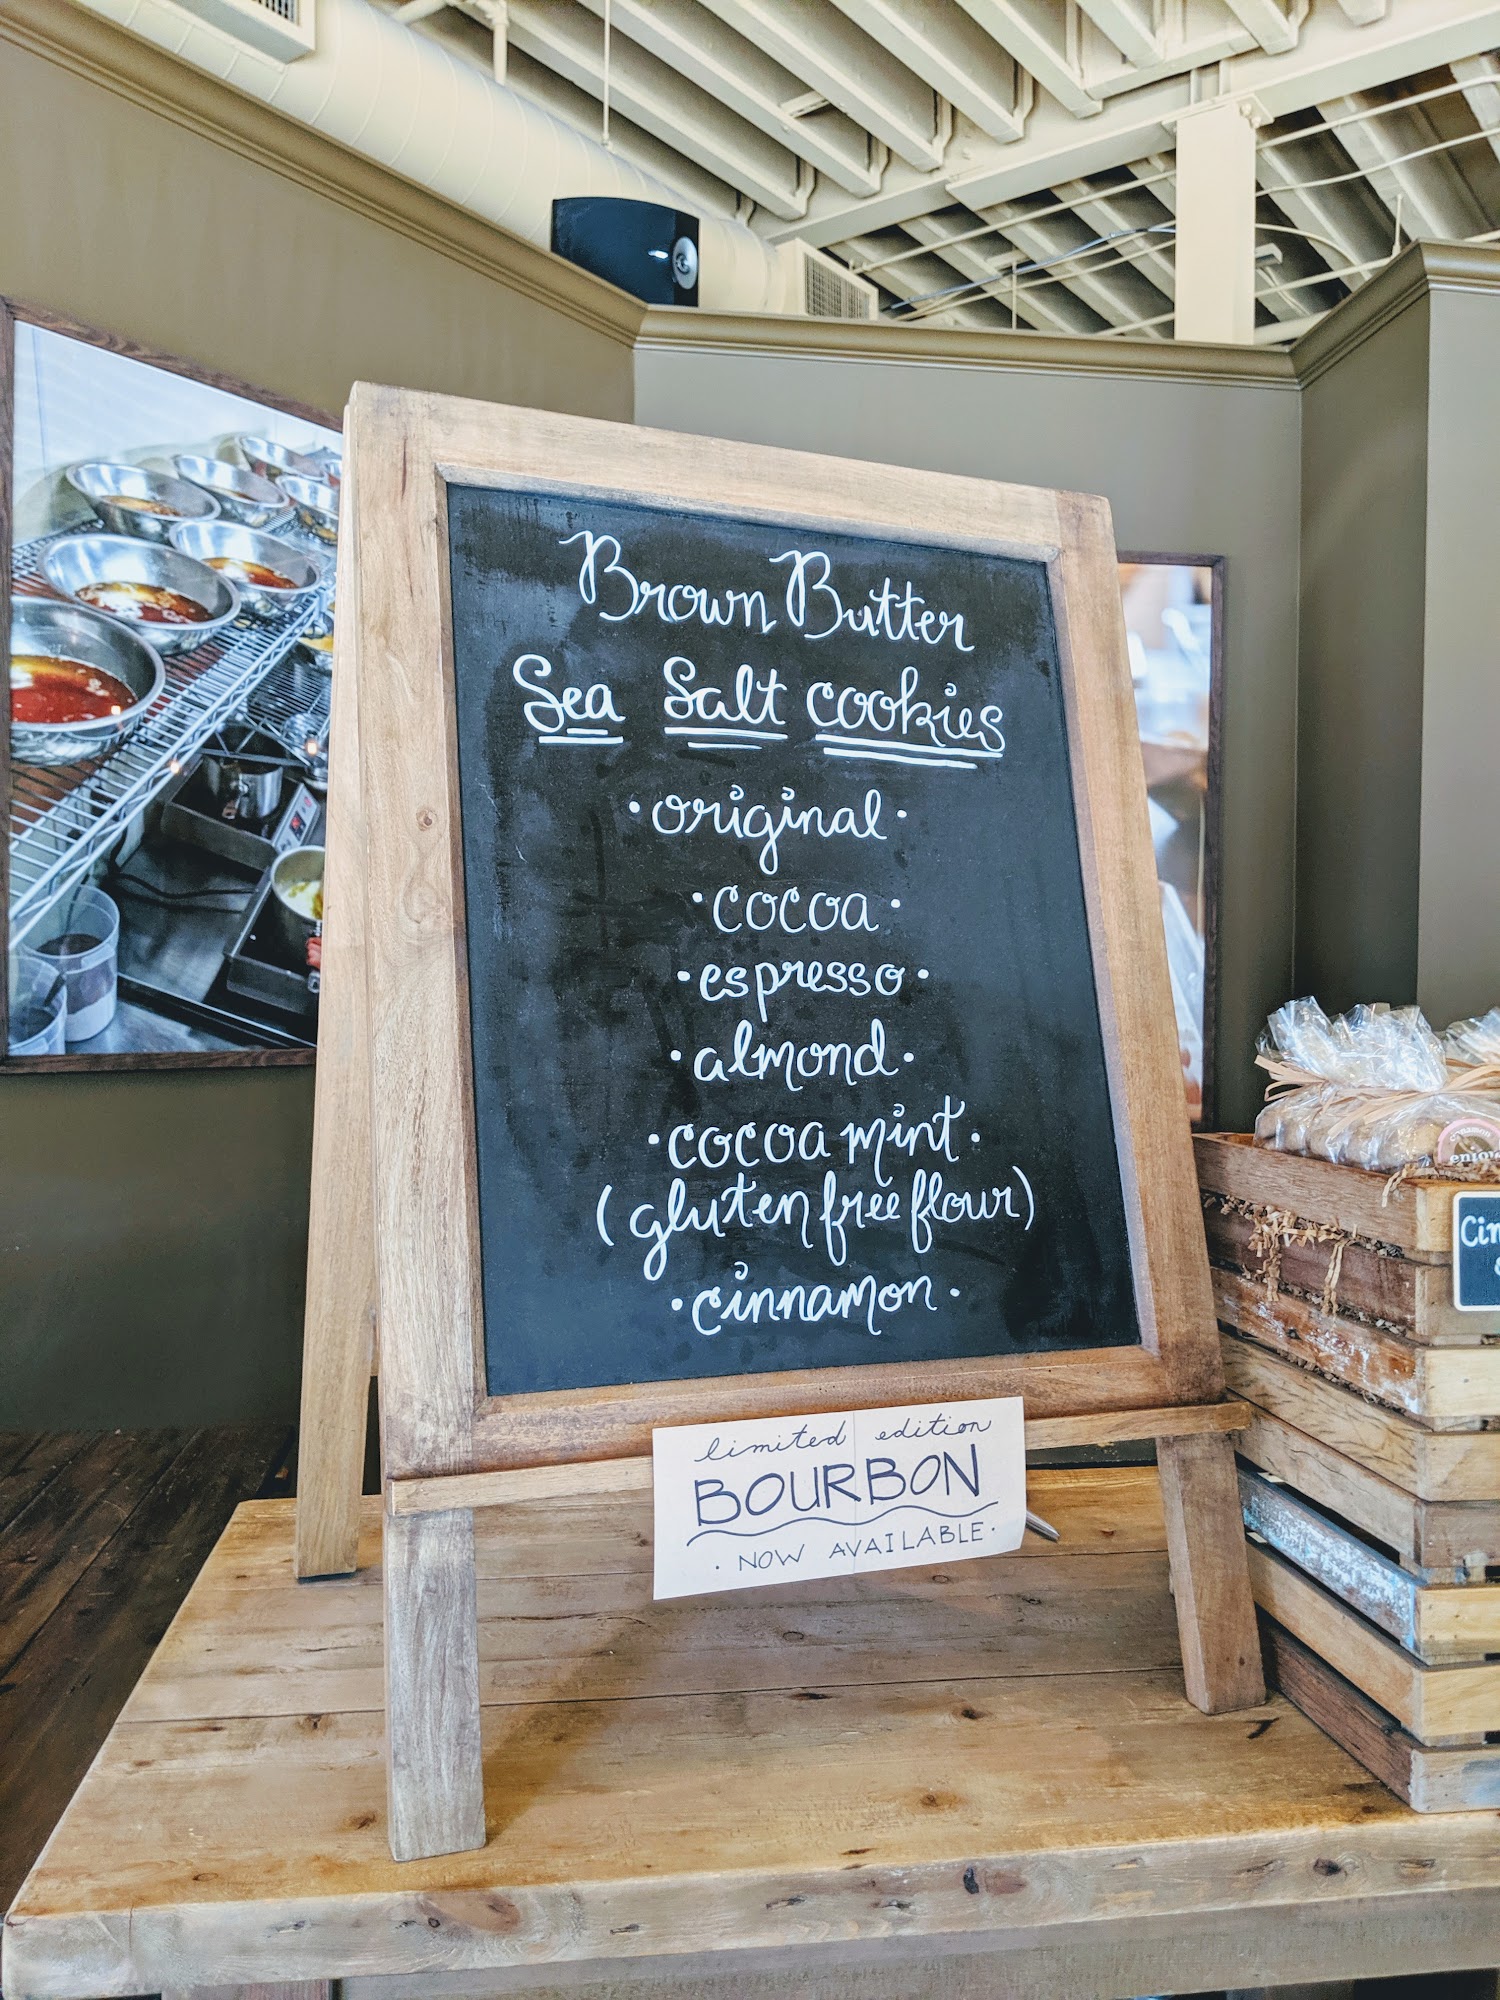 Brown Butter
Sea Salt cookies
· original ·
· cocoa ·
· espresso ·
· almond ·
· cocoa mint ·
(gluten free flour)
· cinnamon ·
limited edition
BOURBON
· NOW AVAILABLE ·
cinnamon
enjoy